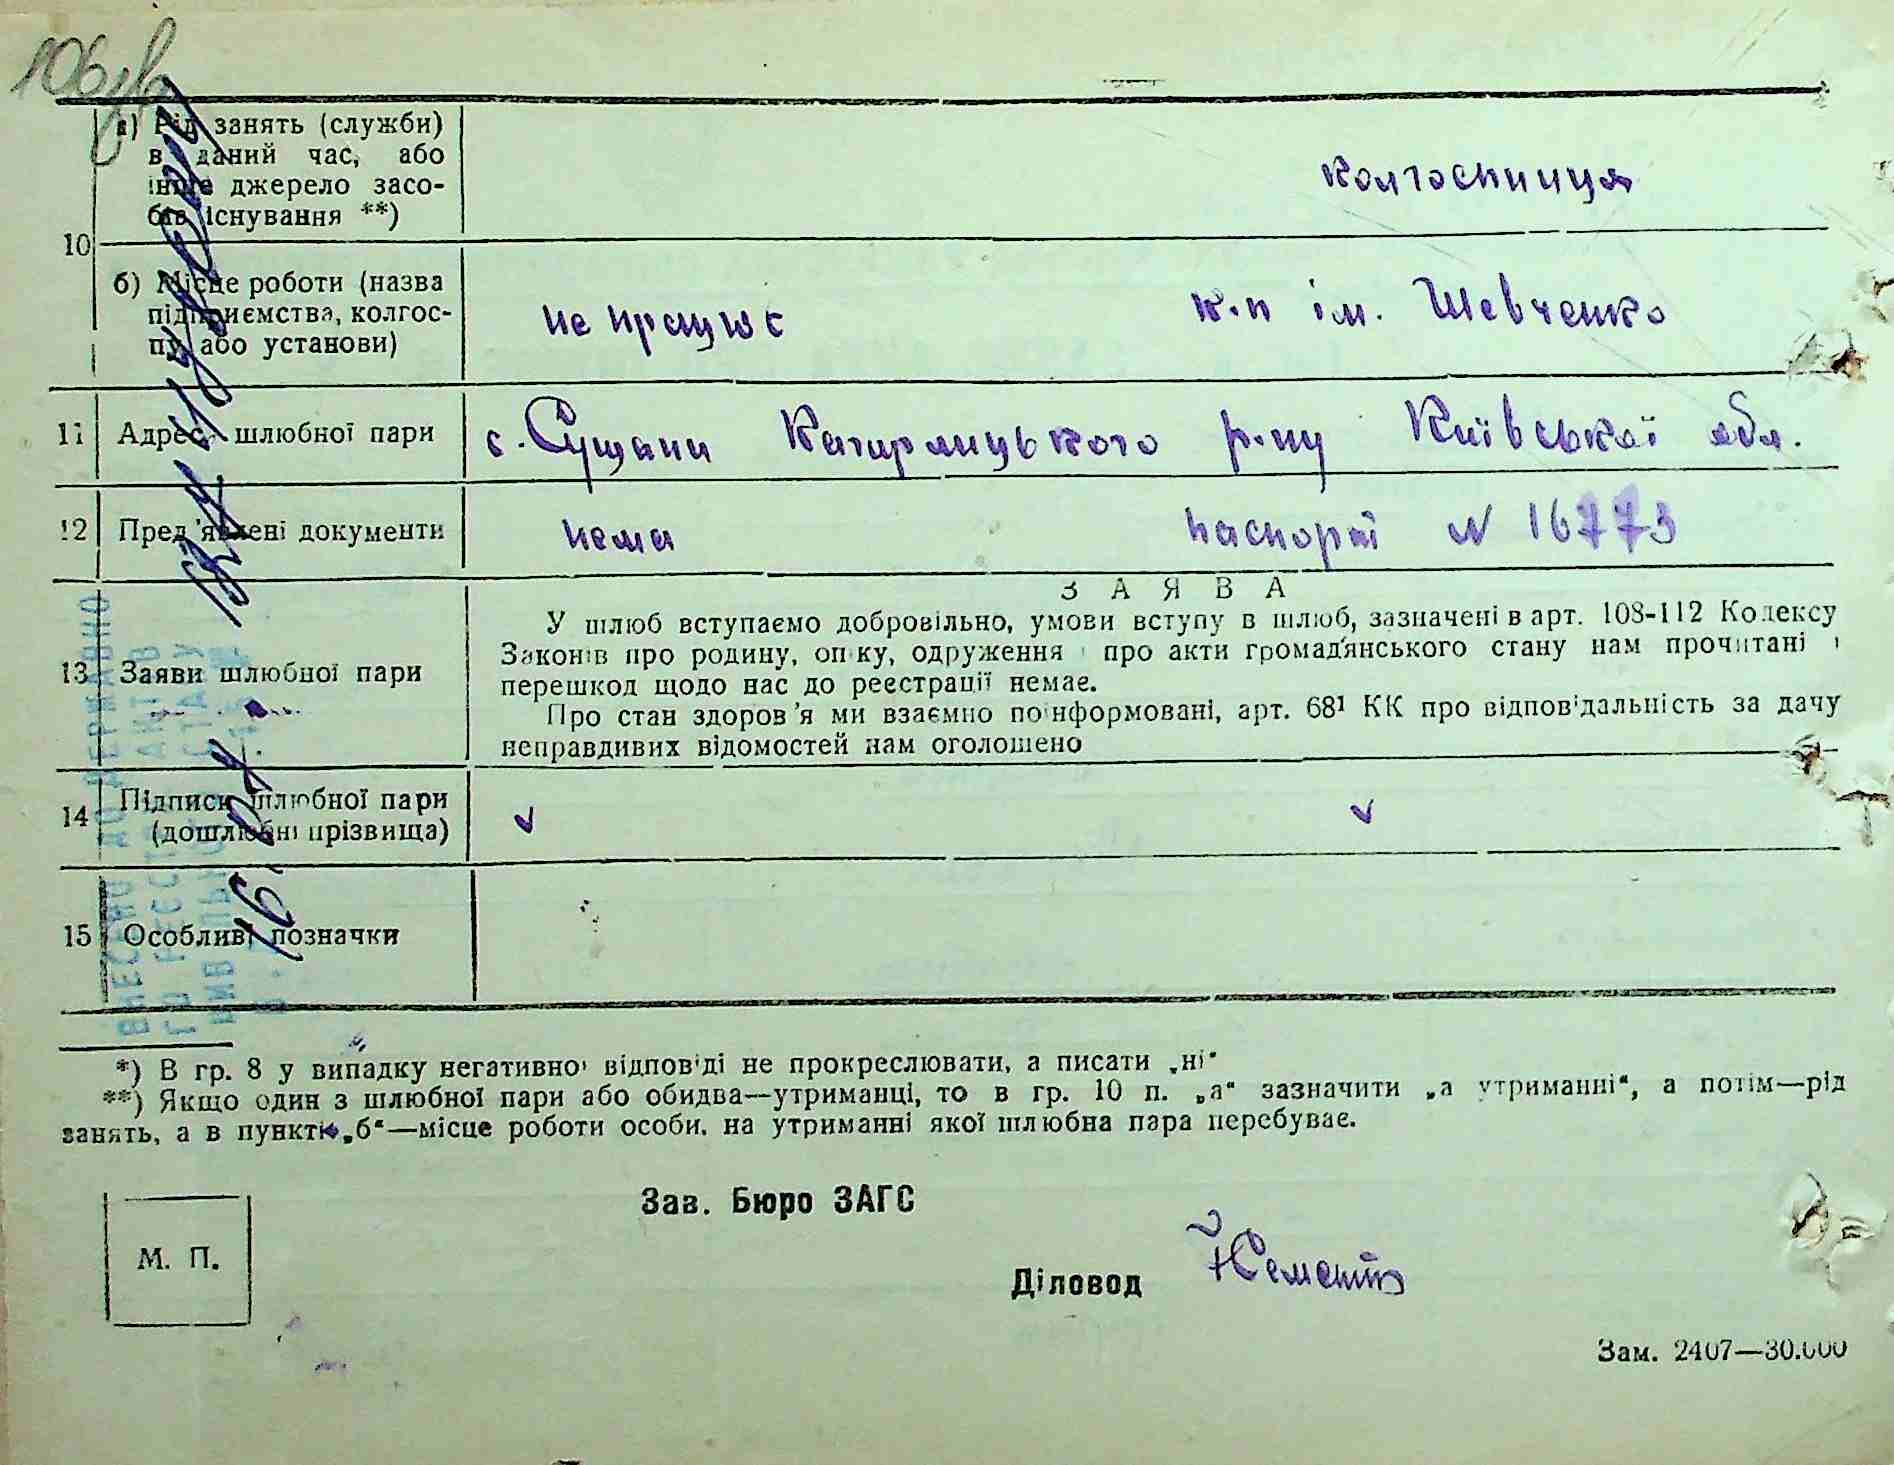 106зв
а) Рід занять (служби)
в даний час, або
інше джерело засо-
бів існування **)
колгоспниця
10
б) Місце роботи (назва
підприємства, колгос-
пу або установи)
не працює
к-п ім. Шевченко
11 Адрес шлюбної пари
с. Сущани Кагарлицького р-ну Київської обл.
12 Пред'явлені документи
нема
паспорт N 16773
13 Заяви шлюбної пари
ЗАЯВА
У шлюб вступаємо добровільно, умови вступу в шлюб, зазначені в арт. 108-112 Кодексу
Законів про родину, опіку, одруження і про акти громадянського стану нам прочитані і
перешкод щодо нас до реєстрації немає.
Про стан здоров'я ми взаємно поінформовані, арт. 68¹ КК про відповідальність за дачу
неправдивих відомостей нам оголошено
14 Підписи шлюбної пари
(дошлюбні прізвища)
15 Особливі позначки
ВНЕСЕНО ДО ДЕРЖАВНО
ГО РЕЄСТ АКТІВ
СТАНУ
16.
*) В гр. 8 у випадку негативної відповіді не прокреслювати, а писати „ні“
**) Якщо один з шлюбної пари або обидва—утриманці, то в гр. 10 п. „а“ зазначити „а утриманні“, а потім—рід
занять, а в пункті „б“—місце роботи особи, на утриманні якої шлюбна пара перебуває.
Зав. Бюро ЗАГС
М. П.
Діловод
Зам. 2407—30.000